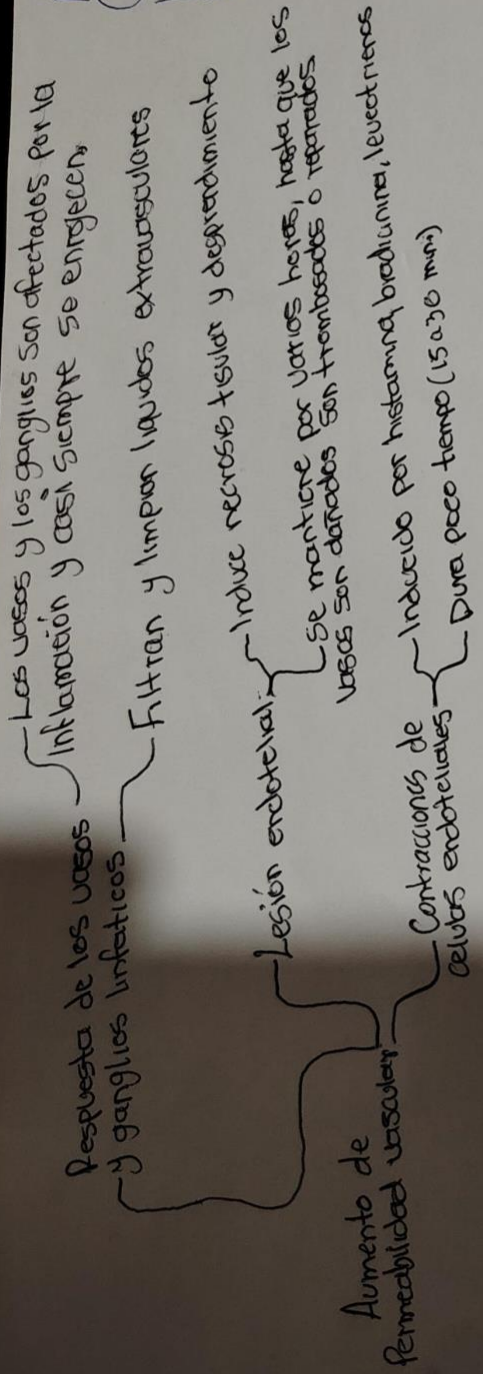 Respuesta de los vasos
y ganglios linfaticos
Los vasos y los ganglios son afectados por la
inflamación y casi siempre se enrojecen.
Filtran y limpian liquidos extravasculares
Aumento de
Permeabilidad vascular
Lesión endotelial:
Induce necrosis tisular y desprendimiento
Se mantiene por varios horas, hasta que los
vasos son dañados son trombosados o reparados
Contracciones de
celulas endoteliales
Inducido por histamina, bradicinina, leucotrienos
Dura poco tiempo (15 a 30 min)